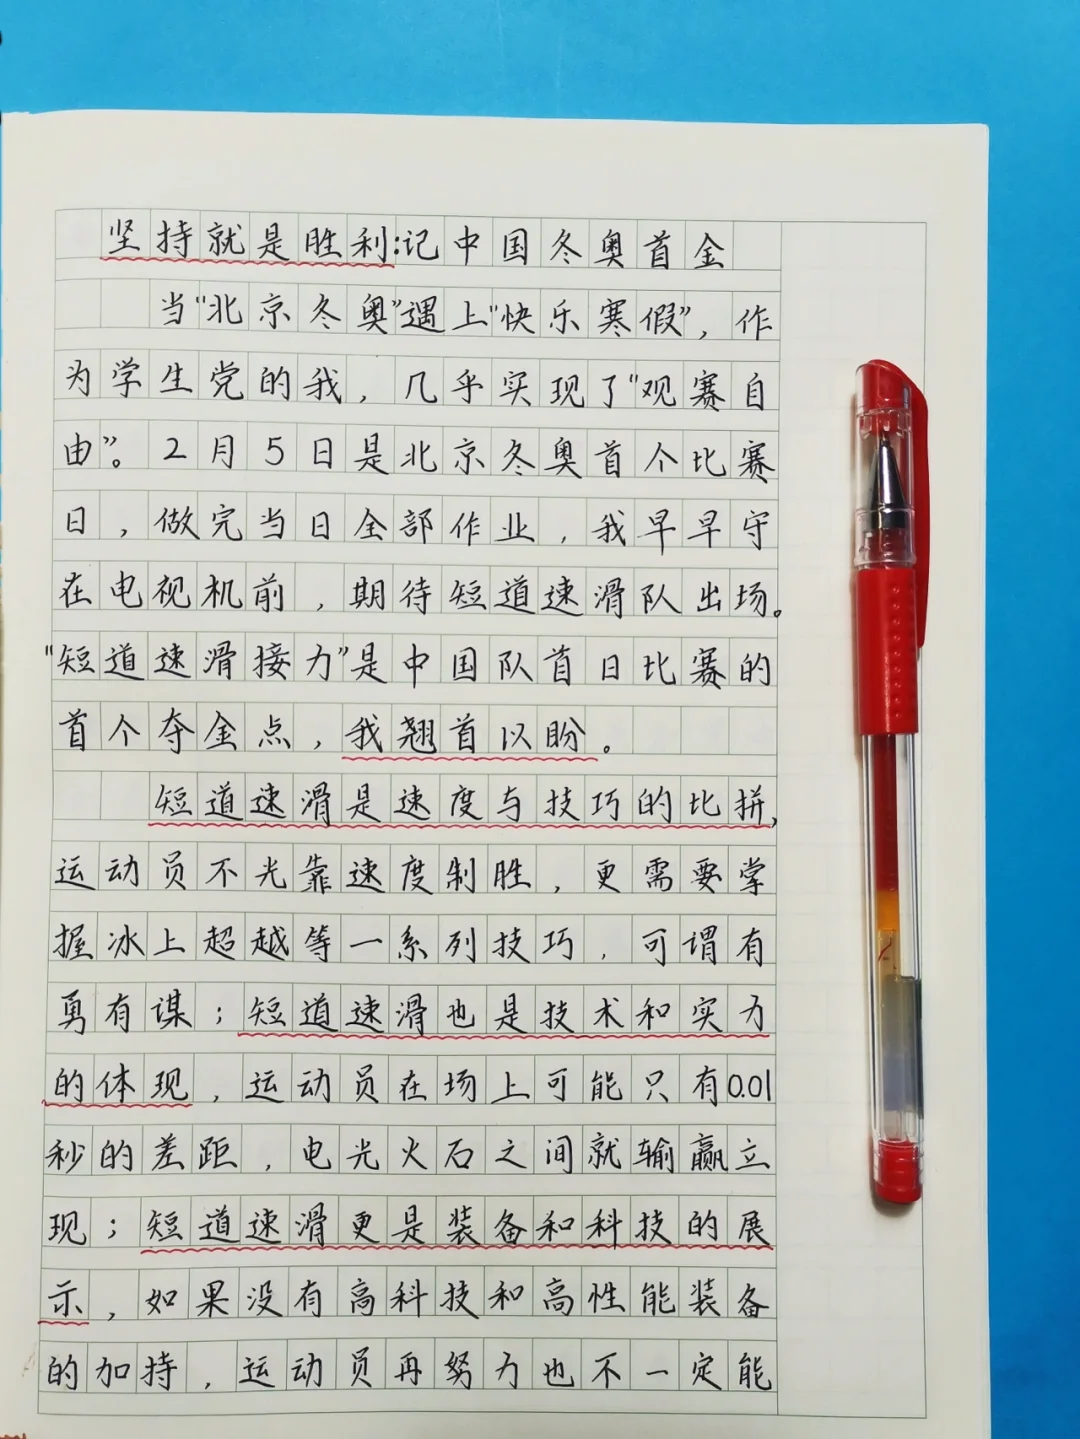 坚持就是胜利:记中国冬奥首金
当"北京冬奥"遇上"快乐寒假"，作
为学生党的我，几乎实现了"观赛自
由"。2月5日是北京冬奥首个比赛
日，做完当日全部作业，我早早守
在电视机前，期待短道速滑队出场。
"短道速滑接力"是中国队首日比赛的
首个夺金点，我翘首以盼。
短道速滑是速度与技巧的比拼，
运动员不光靠速度制胜，更需要掌
握冰上超越等一系列技巧，可谓有
勇有谋；短道速滑也是技术和实力
的体现，运动员在场上可能只有0.01
秒的差距，电光火石之间就输赢立
现；短道速滑更是装备和科技的展
示，如果没有高科技和高性能装备
的加持，运动员再努力也不一定能